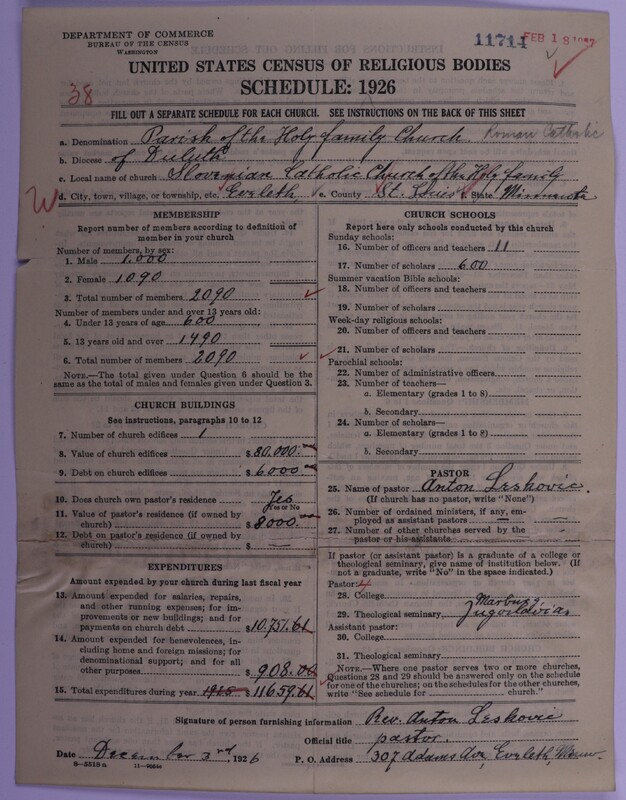 DEPARTMENT OF COMMERCE
BUREAU OF THE CENSUS
WASHINGTON
11714 FEB 18 1927
UNITED STATES CENSUS OF RELIGIOUS BODIES
SCHEDULE: 1926
38
FILL OUT A SEPARATE SCHEDULE FOR EACH CHURCH. SEE INSTRUCTIONS ON THE BACK OF THIS SHEET
a. Denomination Parish of the Holy family Church. Roman Catholic
b. Diocese of Duluth
c. Local name of church Slovenian Catholic Church of the Holy family
d. City, town, village, or township, etc. Eveleth e. County St. Louis f. State Minnesota
MEMBERSHIP
Report number of members according to definition of member in your church
Number of members, by sex:
1. Male 1.000
2. Female 1090
3. Total number of members 2090
Number of members under and over 13 years old:
4. Under 13 years of age 600
5. 13 years old and over 1490
6. Total number of members 2090
NOTE.—The total given under Question 6 should be the same as the total of males and females given under Question 3.
CHURCH BUILDINGS
See instructions, paragraphs 10 to 12
7. Number of church edifices 1
8. Value of church edifices $ 80.000.00
9. Debt on church edifices $ 6000
10. Does church own pastor's residence Yes
Yes or No
11. Value of pastor's residence (if owned by church) $ 8000.
12. Debt on pastor's residence (if owned by church) $ —
EXPENDITURES
Amount expended by your church during last fiscal year
13. Amount expended for salaries, repairs, and other running expenses; for improvements or new buildings; and for payments on church debt $ 10.751.61
14. Amount expended for benevolences, including home and foreign missions; for denominational support; and for all other purposes $ 908.00
15. Total expenditures during year 1925 11659.61
CHURCH SCHOOLS
Report here only schools conducted by this church
Sunday schools:
16. Number of officers and teachers 11
17. Number of scholars 600
Summer vacation Bible schools:
18. Number of officers and teachers
19. Number of scholars
Week-day religious schools:
20. Number of officers and teachers
21. Number of scholars
Parochial schools:
22. Number of administrative officers
23. Number of teachers—
a. Elementary (grades 1 to 8)
b. Secondary
24. Number of scholars—
a. Elementary (grades 1 to 8)
b. Secondary
PASTOR
25. Name of pastor Anton Leskovic.
(If church has no pastor, write "None")
26. Number of ordained ministers, if any, employed as assistant pastors —
27. Number of other churches served by the pastor or his assistants —
If pastor (or assistant pastor) is a graduate of a college or theological seminary, give name of institution below. (If not a graduate, write "No" in the space indicated.)
Pastor:
28. College
29. Theological seminary Marburg Jugoslavia
Assistant pastor:
30. College
31. Theological seminary
NOTE.—Where one pastor serves two or more churches, Questions 28 and 29 should be answered only on the schedule for one of the churches; on the schedules for the other churches, write "See schedule for church."
Signature of person furnishing information Rev. Anton Leskovic
Official title pastor.
Date December 3rd, 1926 P. O. Address 307 Adams Ave, Eveleth, Minn.
8—5319a 11—9034